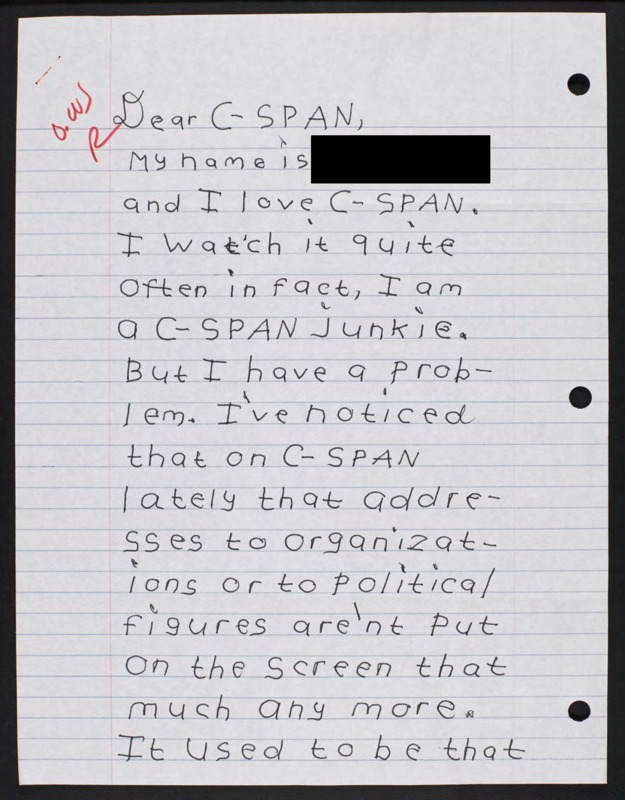 Dear C-SPAN,
My name is
and I love C-SPAN.
I watch it quite
often in fact, I am
a C-SPAN Junkie.
But I have a prob-
lem. I've noticed
that on C-SPAN
lately that addre-
sses to organizat-
ions or to political
figures are'nt put
on the screen that
much any more.
It used to be that